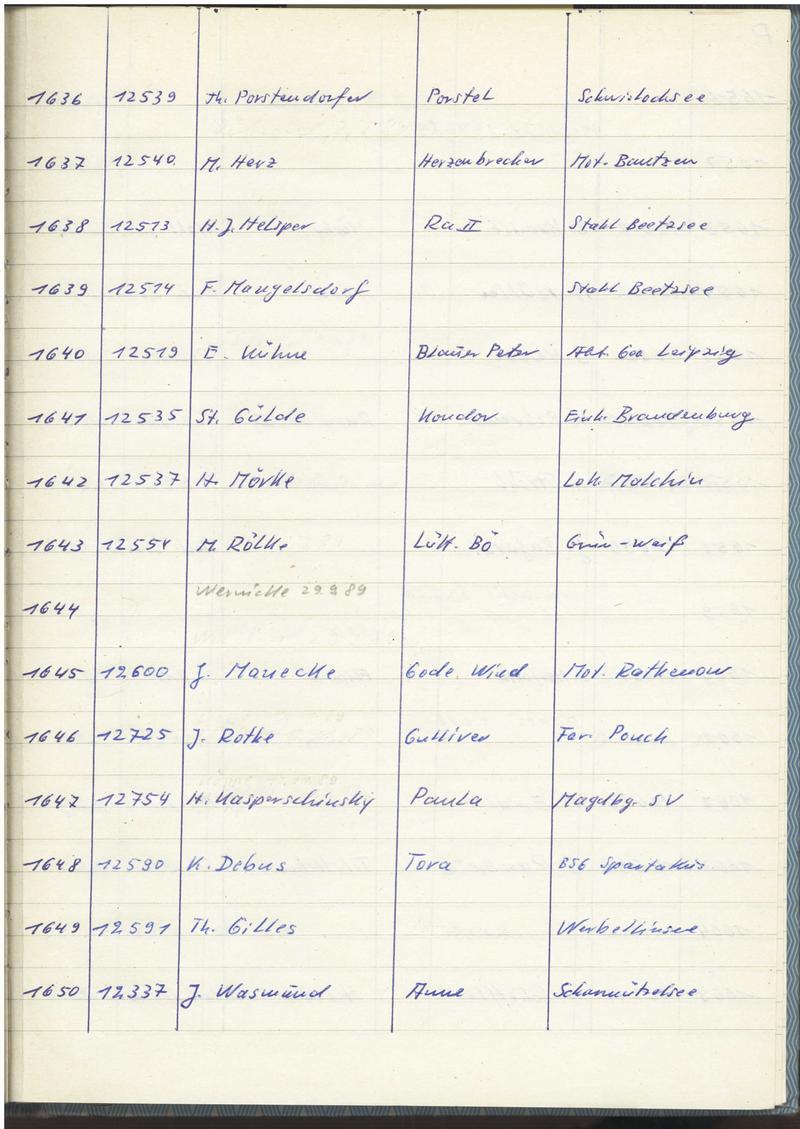 1636 12539 Th. Porstendorfer Porstel Schwielochsee
1637 12540 M. Herz Herzenbrecher Mot. Bautzen
1638 12513 H.J. Helsper Ra II Stahl Beetzsee
1639 12514 F. Mangelsdorf Stahl Beetzsee
1640 12519 E. Kühne Blauer Peter Akt. Goa Leipzig
1641 12535 St. Gülde Kondor Einh. Brandenburg
1642 12537 H. Mörke Lok. Malchin
1643 12554 M. Rölke Lütt. Bö Grün-Weiß
Wernicke 29.9.89
1644
1645 12600 J. Manecke Gode Wind Mot. Rathenow
1646 12725 J. Rothe Gulliver For. Pouch
1647 12754 H. Kasperschinsky Paula Magdbg. SV
1648 12590 K. Debus Tora BSG Spartakus
1649 12591 Th. Gilles Werbellinsee
1650 12337 J. Wasmund Anne Scharmützelsee